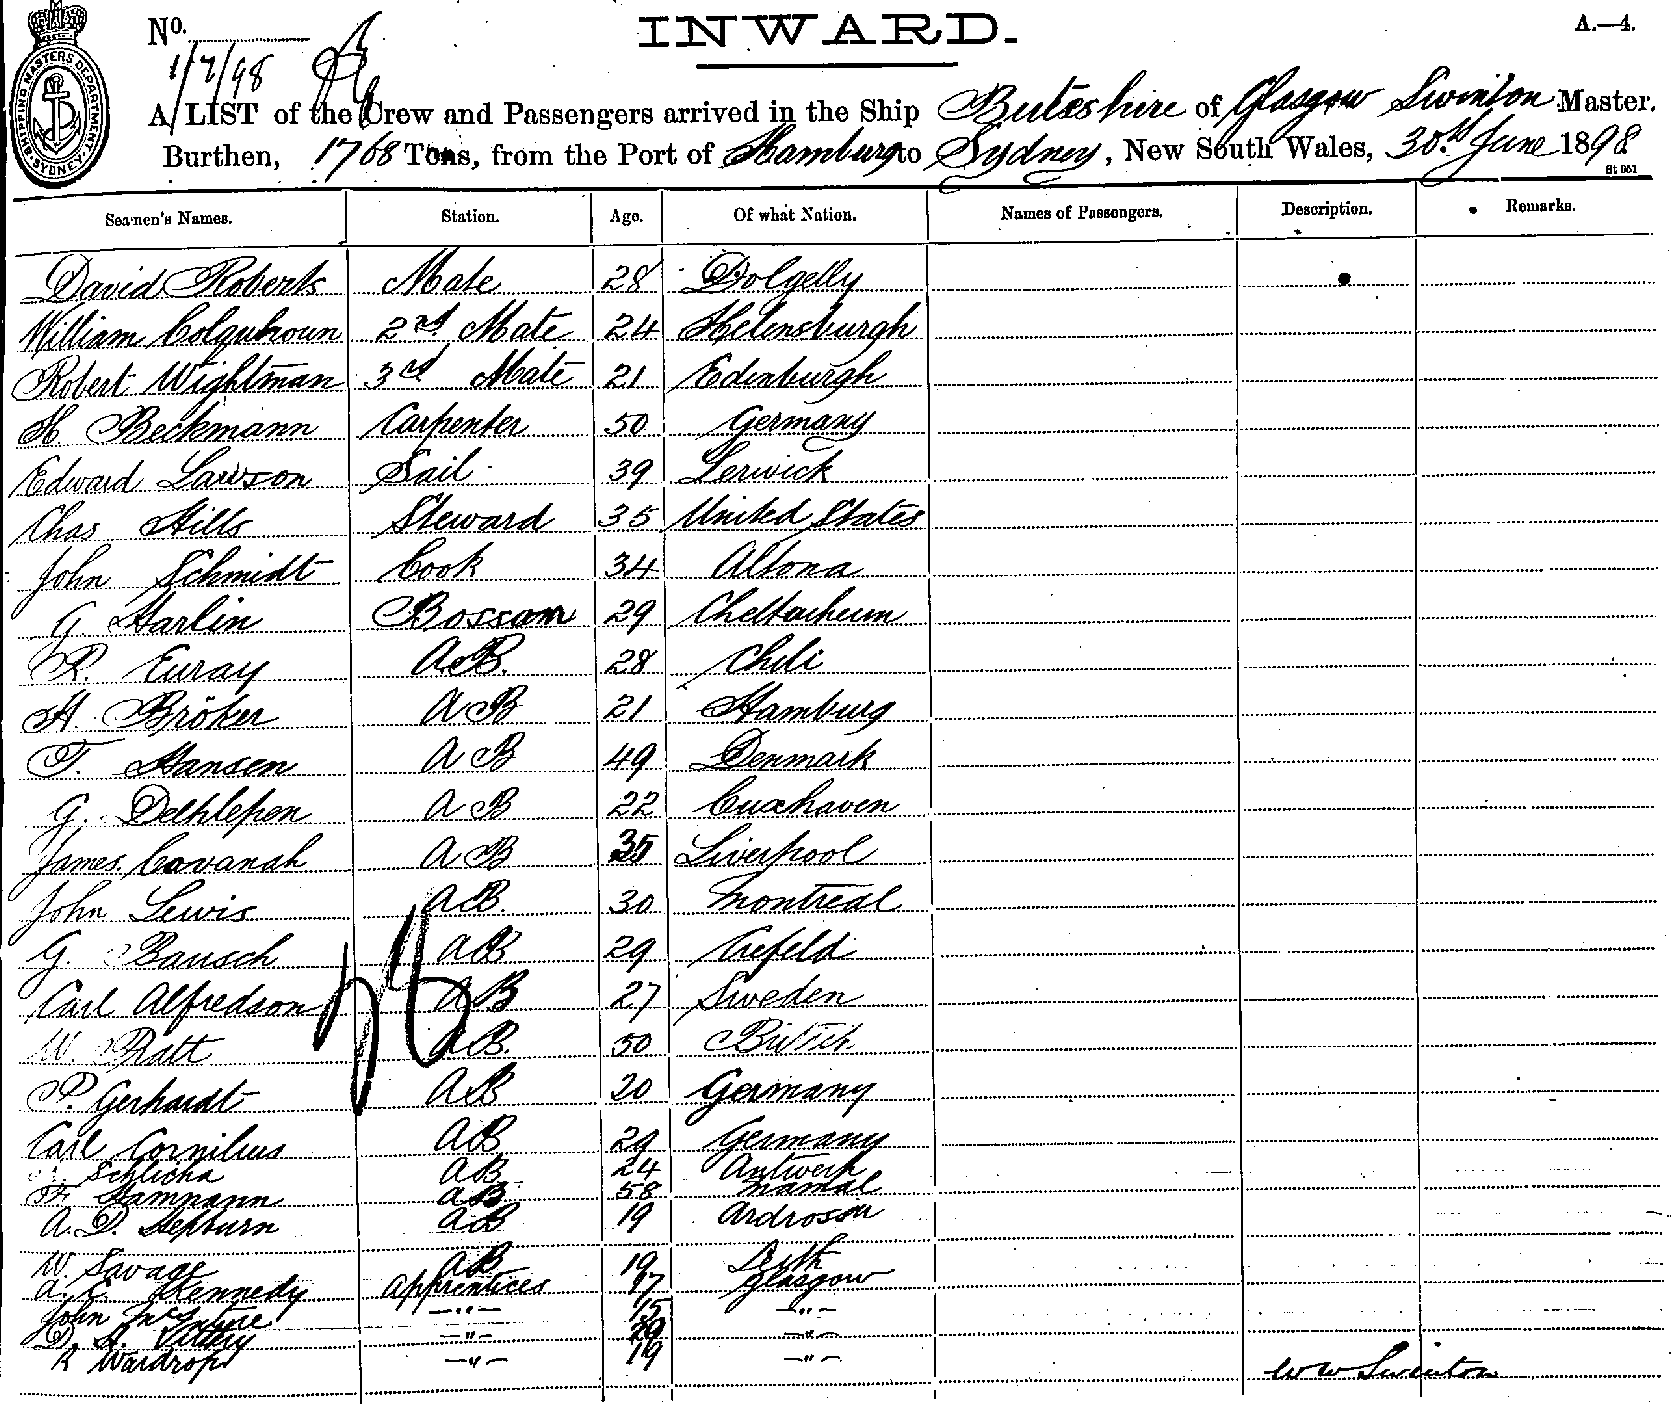 No.
INWARD.
A.—4.
1/7/98
SHIPPING MASTERS DEPARTMENT SYDNEY
A LIST of the Crew and Passengers arrived in the Ship Buteshire of Glasgow Swinton Master.
Burthen, 1768 Tons, from the Port of Hamburg to Sydney, New South Wales, 30th June 1898
St 051
Seamen's Names. Station. Age. Of what Nation. Names of Passengers. Description. Remarks.
David Roberts Mate 28 Dolgelly
William Colquhoun 2nd Mate 24 Helensburgh
Robert Wightman 3rd Mate 21 Edinburgh
H. Beckmann Carpenter 50 Germany
Edward Lawson Sail 39 Lerwick
Chas Hills Steward 35 United States
John Schmidt Cook 34 Altona
G Harlin Bossom 29
R. Euray AB. 28 Chili
H. Bröker AB 21 Hamburg
T. Hansen AB 49 Denmark
G. Dethlepen AB 22 Cuxhaven
James Cavanah AB 35 Liverpool
John Lewis AB. 30 Montreal
G. Bausch AB 29 Crefeld
Carl Alfredson AB 27 Sweden
W. Pratt AB. 50 British
P. Gerhardt AB 20 Germany
Carl Cornilius AB 29 Germany
Schlicha AB 24 Antwerp
F. Hammann AB 58 Mamal
A. D. Hepburn AB 19 Ardrossan
W. Savage AB 19 Leith
A. C. Kennedy Apprentices 17 Glasgow
John —"— 15 —"—
D. A. —"— —"—
R Wardrop —"— 19 —"—
W W Swinton